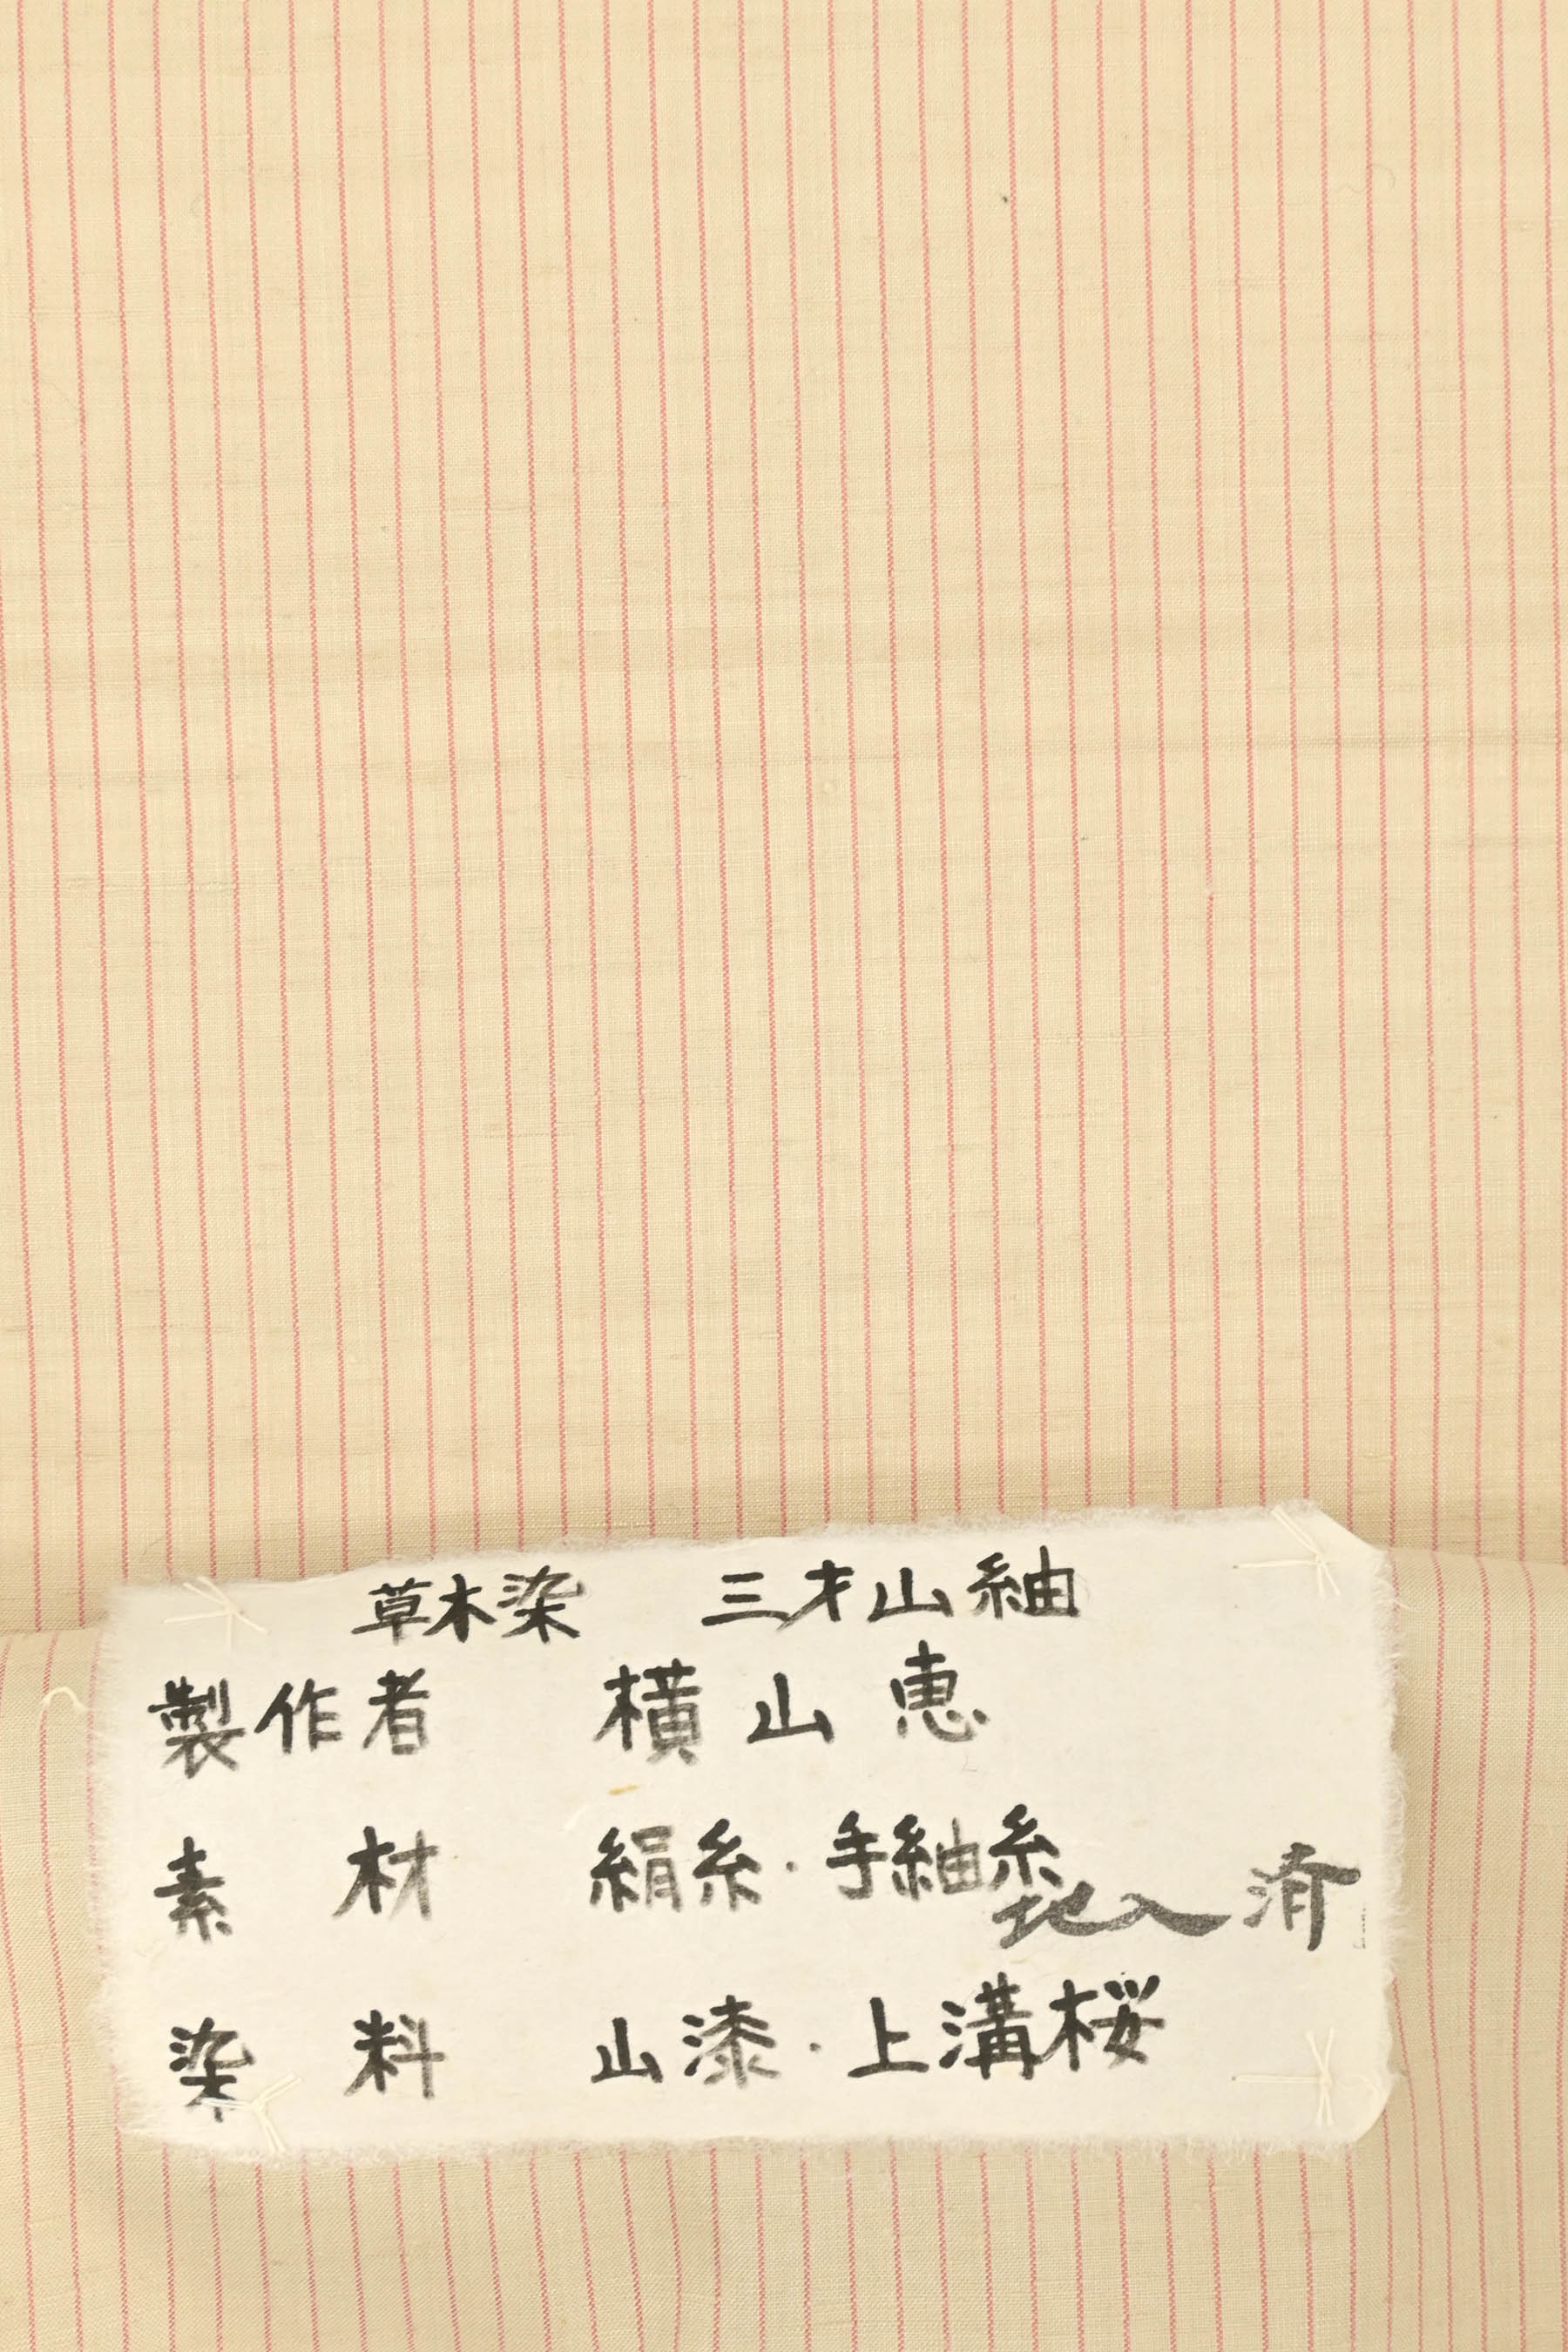 草木染 三才山紬
製作者 横山恵
素材 絹糸・手紬糸
地入済
染料 山漆・上溝桜